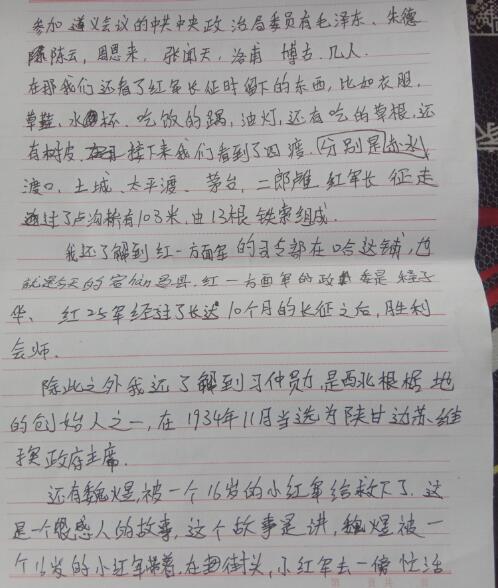 参加遵义会议的中共中央政治局委员有毛泽东、朱德
陈云，周恩来，张闻天，洛甫 博古.几人.
在那我们还看了红军长征时留下的东西，比如衣服.
草鞋、水杯、吃饭的锅，油灯，还有吃的草根，还
有树皮，接下来我们看到了四渡.分别是赤水
渡口、土城、太平渡、茅台，二郎滩 红军长征走
通过了卢沟桥有103米.由13根铁索组成.
我还了解到红一方面军的司令部在哈达铺，也
就是今天的宕仙昌县.红一方面军的政委是程子
华、红25军经过了长达10个月的长征之后，胜利
会师.
除此之外我还了解到习仲勋，是西北根据地
的创始人之一，在1934年11月当选为陕甘边苏维
埃政府主席.
还有魏煜，被一个16岁的小红军给救下了.这
是一个很感人的故事，这个故事是讲，魏煜被一
个16岁的小红军带着，在街头，小红军去一傍忙活